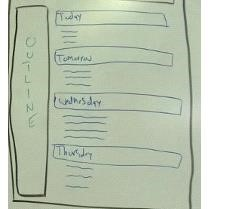 OUTLINE
Today
Tomorrow
Wednesday
Thursday